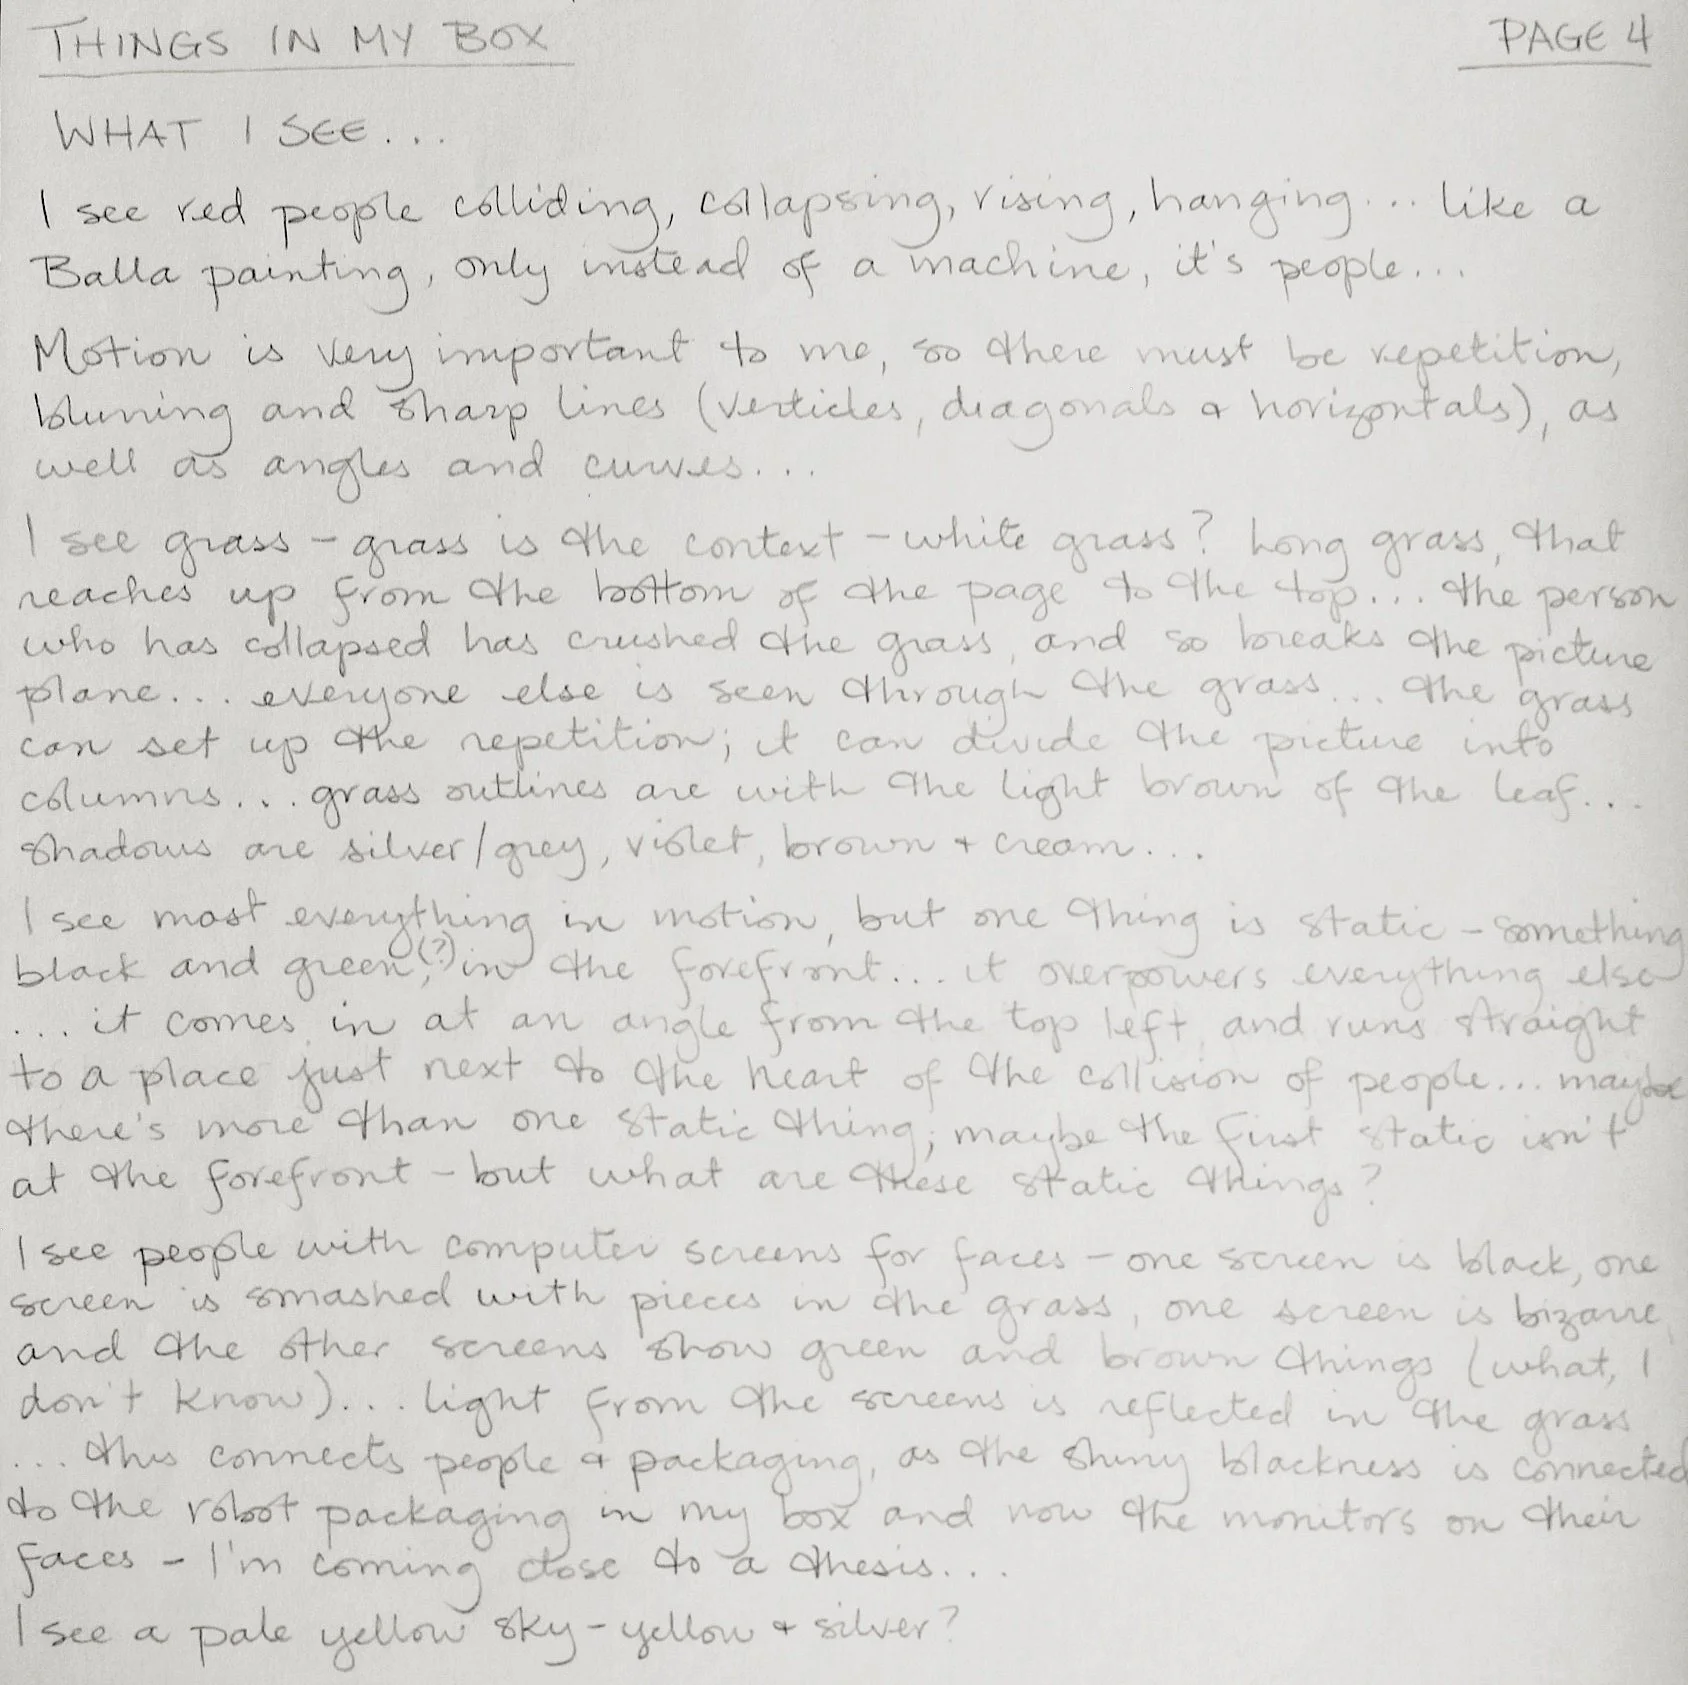 THINGS IN MY BOX
PAGE 4
WHAT I SEE...
I see red people colliding, collapsing, rising, hanging... like a
Balla painting, only instead of a machine, it's people...
Motion is very important to me, so there must be repetition,
blurring and sharp lines (verticles, diagonals & horizontals), as
well as angles and curves...
I see grass - grass is the context - white grass? Long grass, that
reaches up from the bottom of the page to the top... the person
who has collapsed has crushed the grass, and so breaks the picture
plane... everyone else is seen through the grass... the grass
can set up the repetition; it can divide the picture into
columns... grass outlines are with the light brown of the leaf...
shadows are silver/grey, violet, brown & cream...
I see most everything in motion, but one thing is static - something
black and green(?), in the forefront... it overpowers everything else
... it comes in at an angle from the top left, and runs straight
to a place just next to the heart of the collision of people... maybe
there's more than one static thing; maybe the first static isn't
at the forefront - but what are these static things?
I see people with computer screens for faces - one screen is black, one
screen is smashed with pieces in the grass, one screen is bizarre,
and the other screens show green and brown things (what, I
don't know)... light from the screens is reflected in the grass
... this connects people & packaging, as the shiny blackness is connected
to the robot packaging in my box and now the monitors on their
faces - I'm coming close to a thesis...
I see a pale yellow sky - yellow & silver?